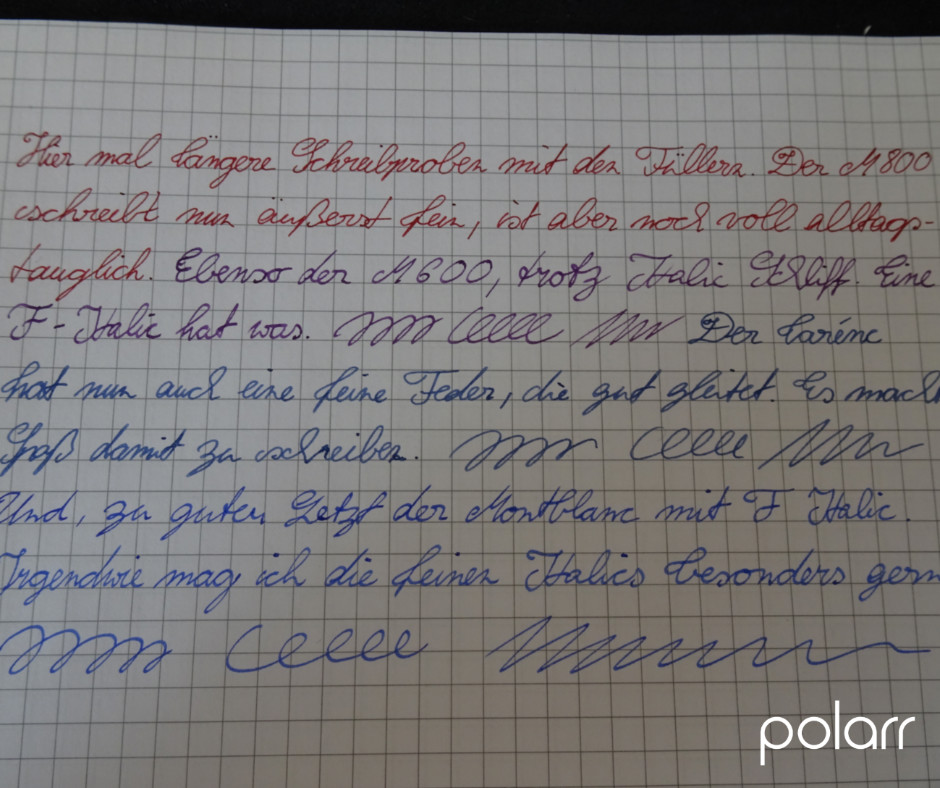 Hier mal längere Schreibproben mit den Füllern. Der M800
schreibt nun äußerst fein, ist aber noch voll alltags-
tauglich. Ebenso der M600, trotz Italic Schliff. Eine
F-Italic hat was. Der Carène
hat nun auch eine feine Feder, die gut gleitet. Es macht
Spaß damit zu schreiben.
Und, zu guter Letzt der Montblanc mit F Italic.
Irgendwie mag ich die feinen Italics besonders gern
polarr